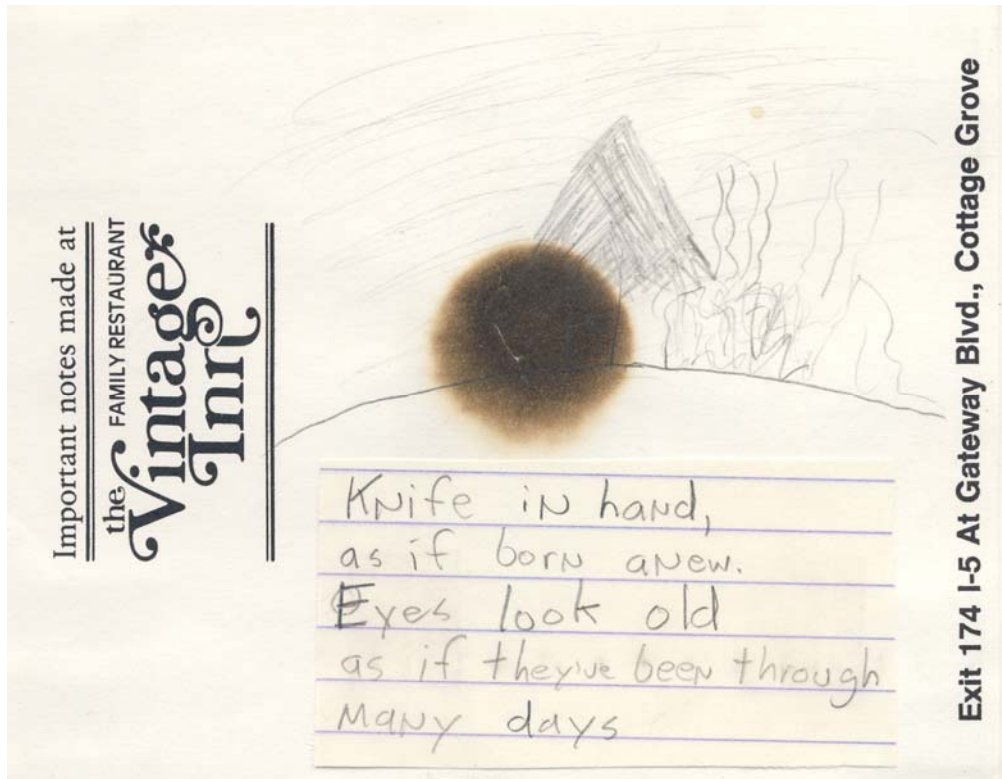 Important notes made at
the FAMILY RESTAURANT
Vintager
Inn
Knife in hand,
as if born anew.
Eyes look old
as if they've been through
many days
Exit 174 I-5 At Gateway Blvd., Cottage Grove